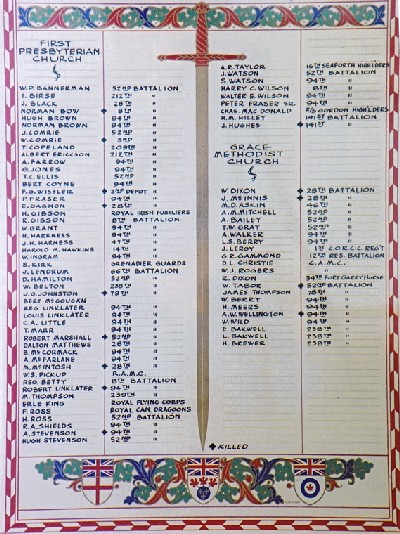 FIRST
PRESBYTERIAN
CHURCH
W.P. BANNERMAN 52ND BATTALION
I. BIRSE 212TH "
J. BLACK 28TH "
NORMAN BOW ✦ 8TH "
HUGH BROWN 94TH "
NORMAN BROWN 94TH "
J. COMRIE 52ND "
W. COMRIE ✦ 3RD "
T. COPELAND 209TH "
ALBERT ERICKSON 212TH "
A. FARROW 94TH "
G. JONES 94TH "
T.C. ELLIS 52ND "
BERT COYNE 94TH "
P. FRASER 94TH "
E. GAGNON ✦ 28TH "
H. GIBSON ROYAL IRISH FUSILIERS
R. GIBSON 8TH BATTALION
W. GRANT 94TH "
H. HARKNESS 94TH "
J.H. HARNESS 47TH "
HAROLD M. HAWKINS 14TH "
W. INGRAM 94TH "
S. KIRK GRENADIER GUARDS
J. LENDRUM 66TH BATTALION
D. HAMILTON 52ND "
W. BELTON 238TH "
J.G. JOHNSTON ✦ 79TH "
BERT MCGUIGAN
REG. LINKLATER 94TH "
LOUIS LINKLATER 94TH "
C.A. LITTLE 94TH "
T. MARR 94TH "
ROBERT MARSHALL ✦ 52ND "
DALTON MATTHEWS 28TH "
B. MCCORMACK 94TH "
A. MCFARLANE 94TH "
M. MCINTOSH ✦ 28TH "
W.S. PICKUP R.A.M.C.
GEO. BETTY 8TH BATTALION
ROBERT LINKLATER ✦ 94TH "
M. THOMPSON 239TH "
ERLE KING ROYAL FLYING CORPS
F. ROSS ROYAL CAN. DRAGOONS
H. ROSS 52ND BATTALION
R.A. SHIELDS 94TH "
A. STEVENSON ✦ 94TH "
HUGH STEVENSON 52ND "
A.R. TAYLOR 16TH SEAFORTH HIGHLDERS
J. WATSON 52ND BATTALION
S. WATSON 94TH "
HARRY C. WILSON 8TH "
WALTER E. WILSON 94TH "
PETER FRASER SR. 94TH "
CHAS. MACDONALD GORDON HIGHLDERS
H.M. HILLEY 141ST BATTALION
J. HUGHES ✦ 141ST "
GRACE
METHODIST
CHURCH
W. DIXON ✦ 28TH BATTALION
J. MCINNIS ✦ 28TH "
M.D. ASKIN 46TH "
A.M. MITCHELL 52ND "
A. BAILEY 52ND "
F.W. GRAY 52ND "
A. WALKER 94TH "
L.S. BERRY 94TH "
J. LEROY 1ST C.O.R.C.C. REG'T
G.R. GAMMOND 12TH RES. BATTALION
D.L. CHRISTIE C.A.M.C.
W.J. ROGERS "
R. DIXON
W. TABOR ✦ 52ND BATTALION
JAMES THOMPSON 28TH "
W. BERRT 94TH "
H. MEERS 94TH "
A.W. WELLINGTON ✦ 94TH "
W. WILD 94TH "
E. BAKWELL 238TH "
L. BAKWELL 238TH "
H. BREWER 238TH "
✦ KILLED